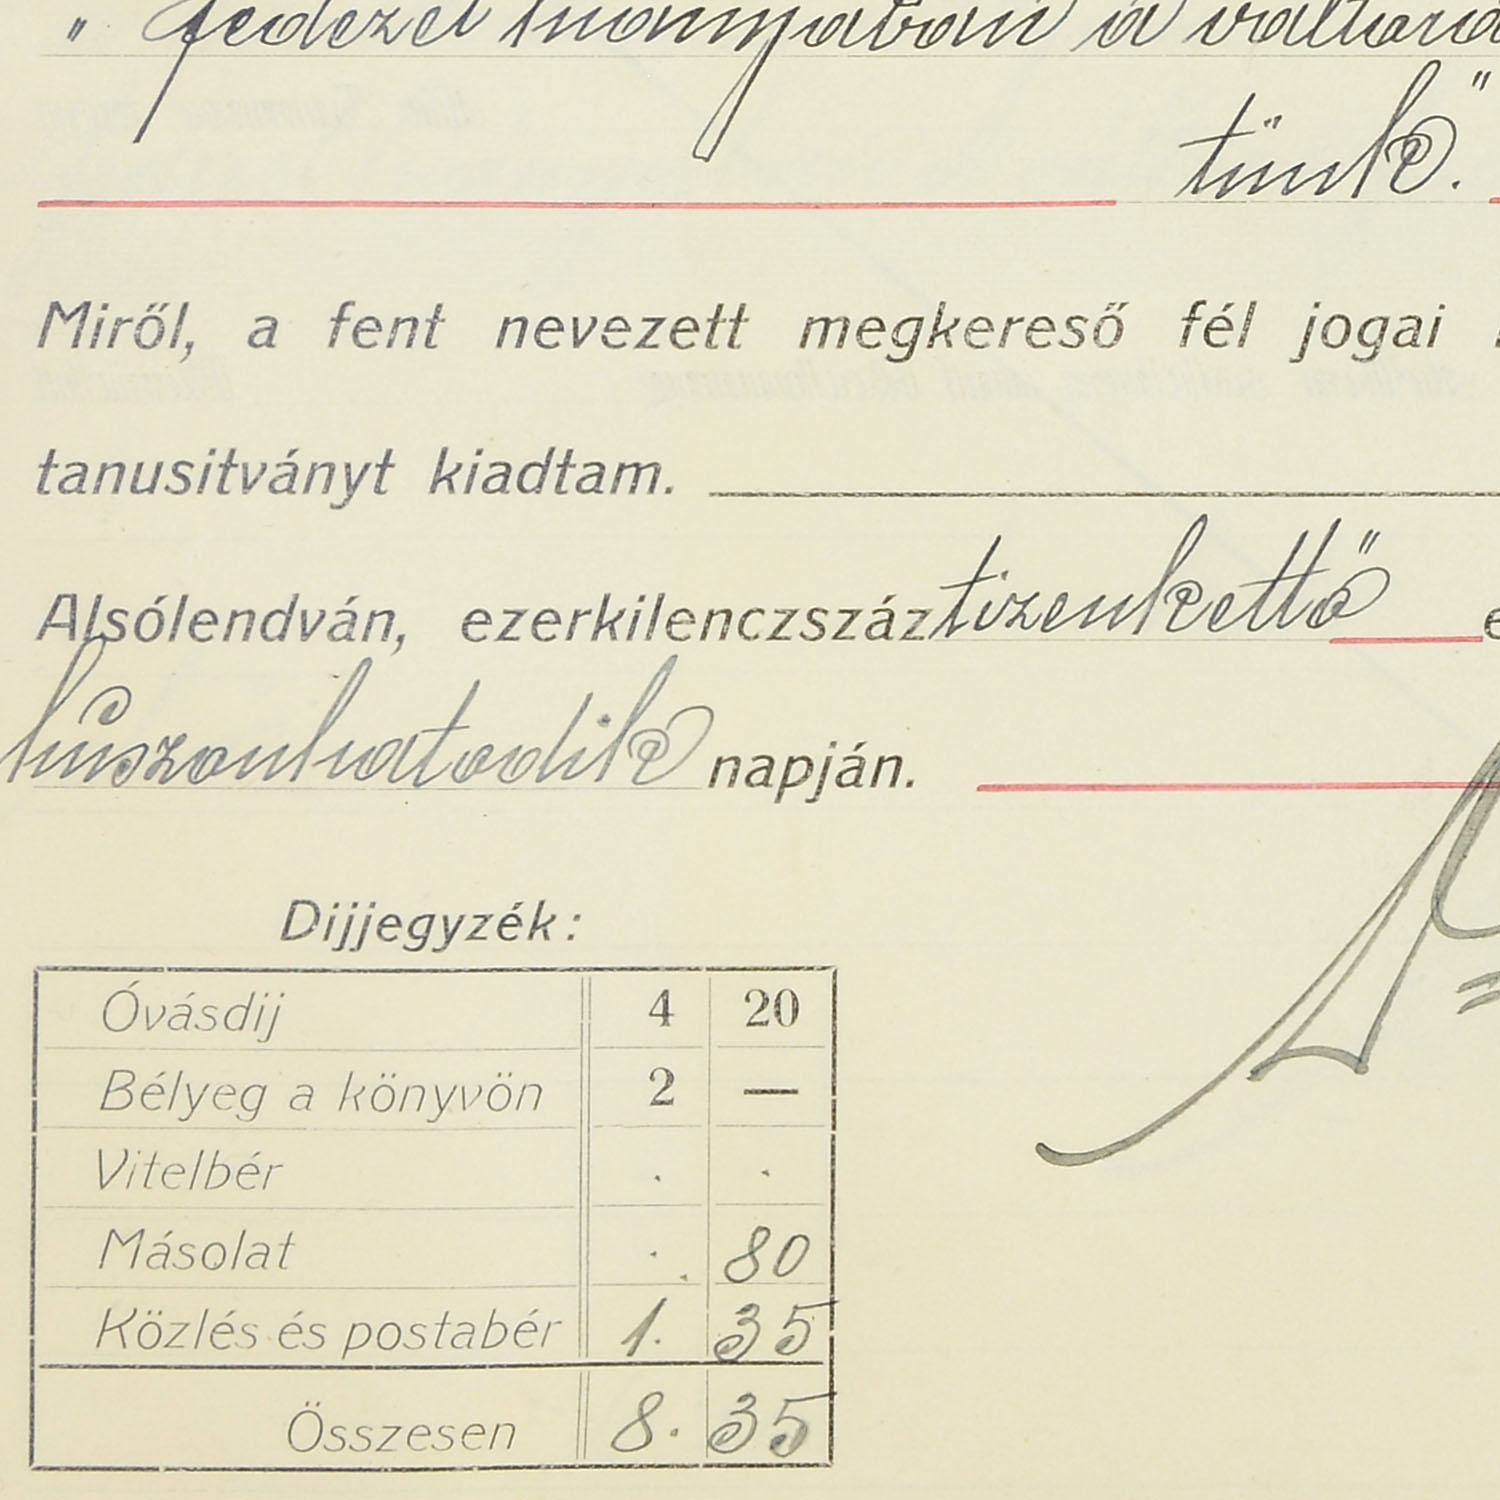 " fedezet hiányában á váltóra
tünk."
Miről, a fent nevezett megkereső fél jogai
tanusitványt kiadtam.
Alsólendván, ezerkilenczszáztizenkettő e
húszonhatodik napján.
Dijjegyzék:
Óvásdij 4 20
Bélyeg a könyvön 2 —
Vitelbér . .
Másolat . . 80
Közlés és postabér 1. 35
Összesen 8. 35